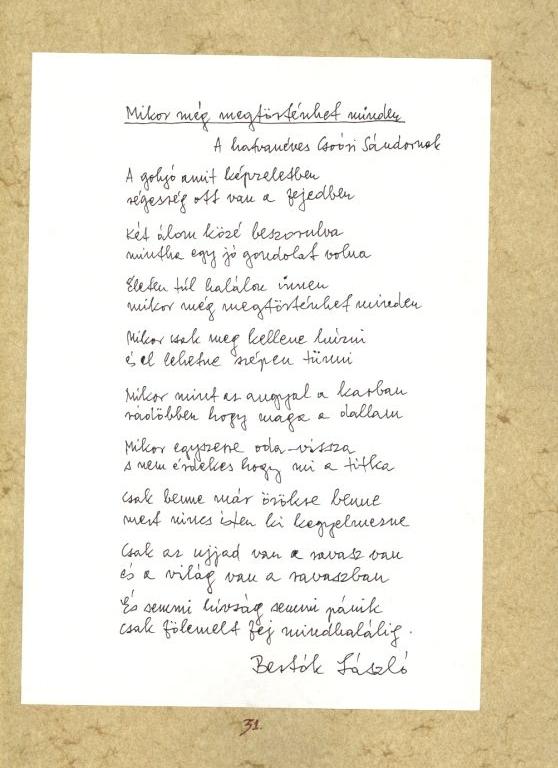 Mikor még megtörténhet minden
A hatvanéves Csoóri Sándornak
A golyó amit képzeletben
régesrég ott van a fejedben
Két álom közé beszorulva
mintha egy jó gondolat volna
Életen túl halálon innen
mikor még megtörténhet minden
Mikor csak meg kellene húzni
és el lehetne szépen tünni
Mikor mint az angyal a karban
rádöbben hogy maga a dallam
Mikor egyszerre oda-vissza
s nem érdekes hogy mi a titka
Csak benne már örökre benne
mert nincs isten ki kegyelmezne
Csak az ujjad van a ravasz van
és a világ van a ravaszban
És semmi hívság semmi pánik
csak fölemelt fej mindhalálig.
Bertók László
31.